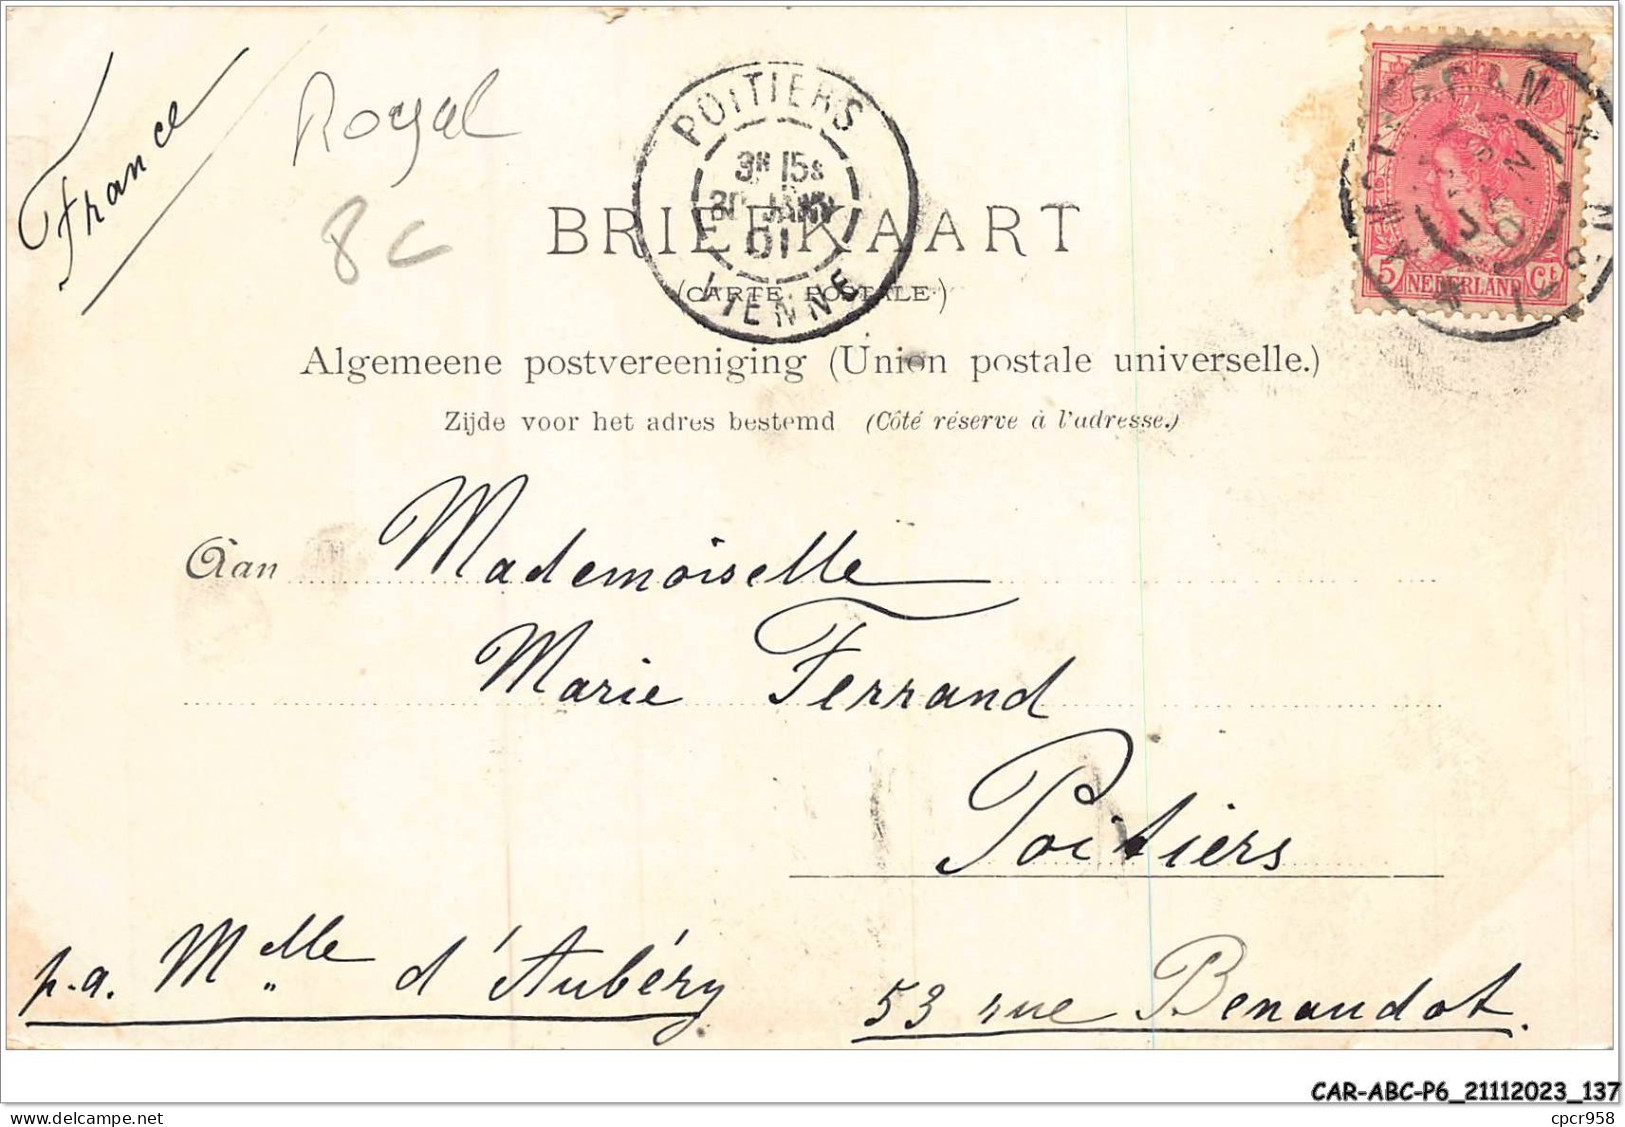 France
Royal
8c
POITIERS
3H 15S
30 JANV
01
VIENNE
AMSTERDAM
JAN
01
5 NEDERLAND Ct
BRIEFKAART
(CARTE POSTALE.)
Algemeene postvereeniging (Union postale universelle.)
Zijde voor het adres bestemd (Côté réserve à l'adresse.)
Aan Mademoiselle
Marie Ferrand
Poitiers
p.a. Melle d'Aubéry 53 rue Benaudot.
CAR-ABC-P6_21112023_137
cpcr958